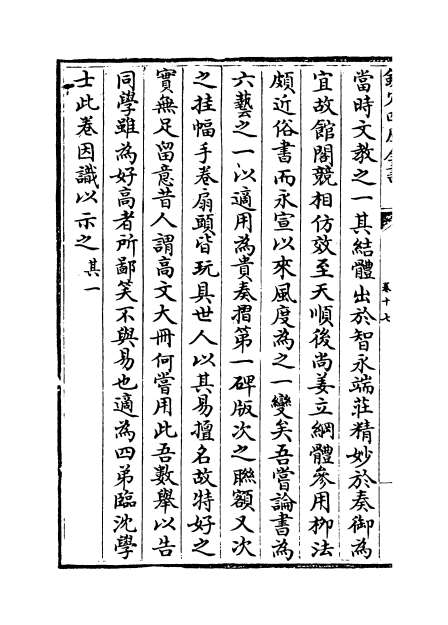 欽定四庫全書
卷十七
當時文教之一其結體出於智永端莊精妙於奏御為
宜故館閣競相仿效至天順後尚姜立綱體參用柳法
頗近俗書而永宣以來風度為之一變矣吾嘗論書為
六藝之一以適用為貴奏摺第一碑版次之聯額又次
之挂幅手卷扇頭皆玩具世人以其易擅名故特好之
實無足留意昔人謂高文大冊何嘗用此吾數舉以告
同學雖為好高者所鄙笑不與易也適為四弟臨沈學
士此卷因識以示之其一